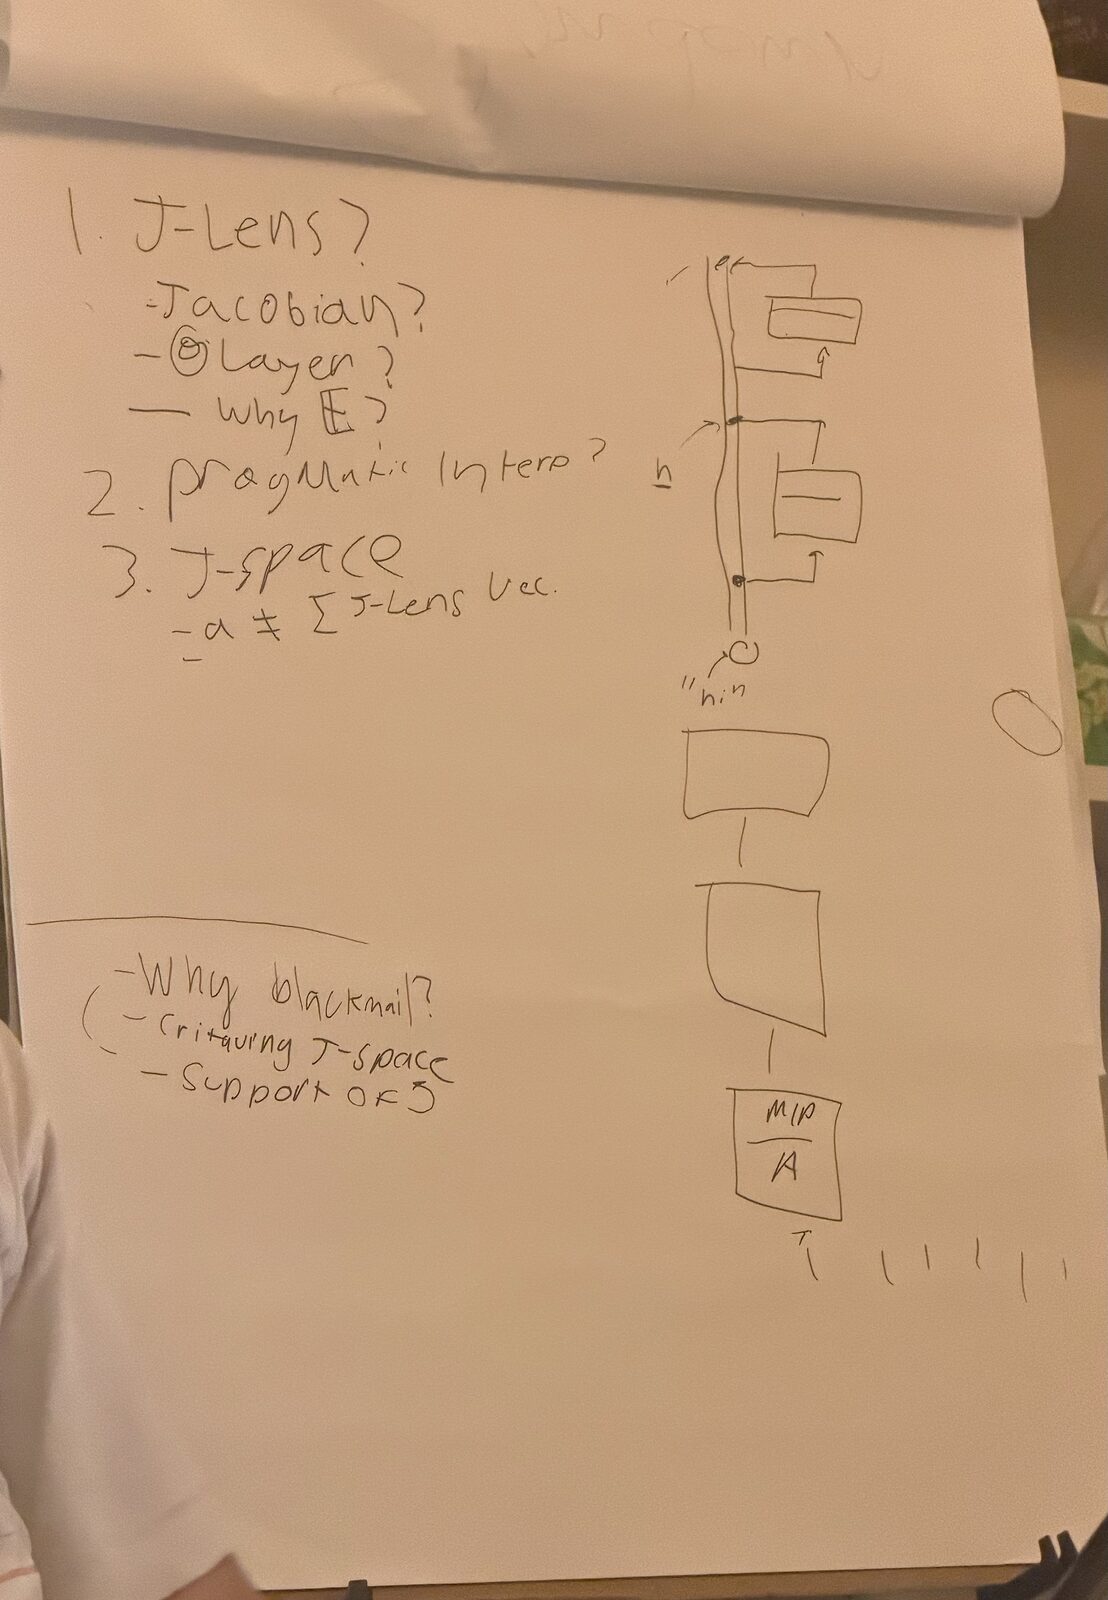 1. J-Lens?
- Jacobian?
- Layer?
- Why 𝔼?
2. pragmatic Interp?
3. J-space
- a ≠ Σ J-Lens Vec.
-
h
"hi"
- Why blackmail?
- Critquing J-space
- Support of J
MLP
A